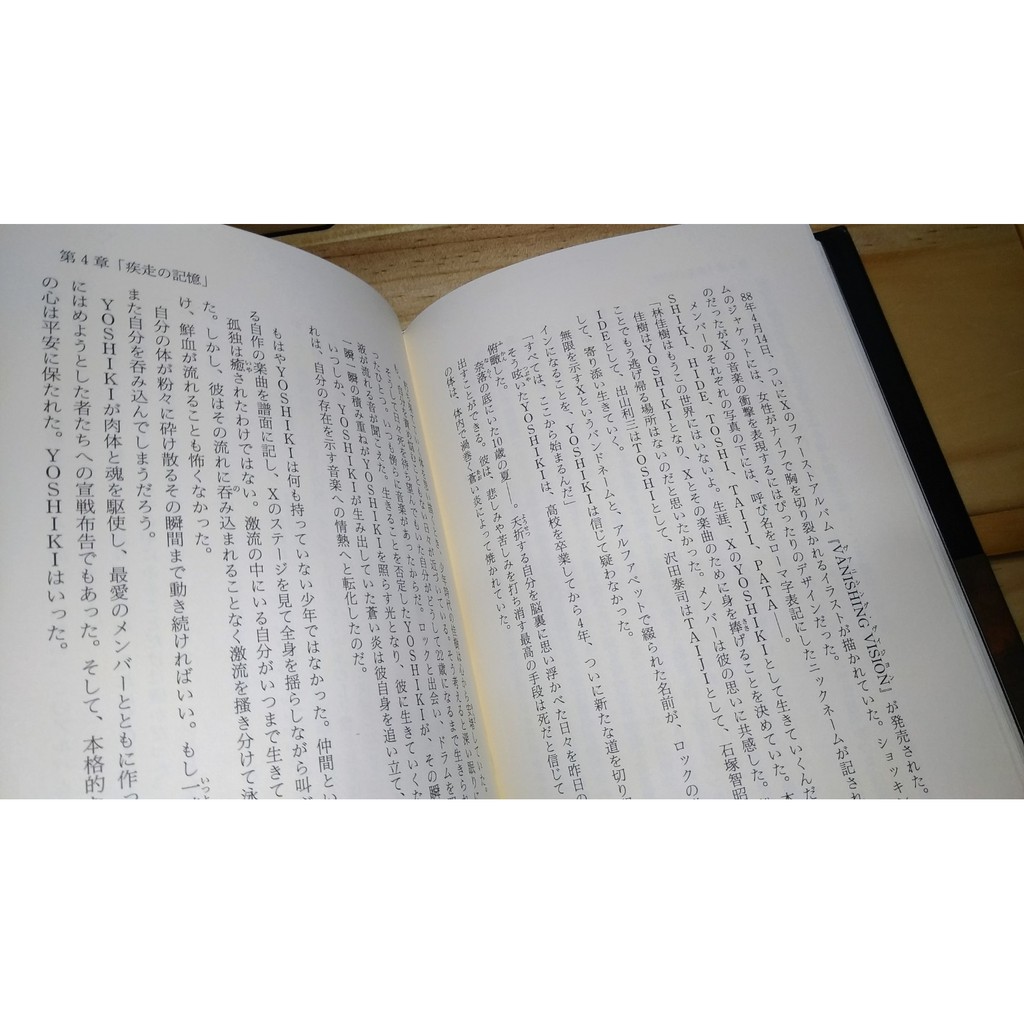 88年4月14日、ついにXのファーストアルバム『VANISHING VISION』が発売された。ショッキ
ムのジャケットには、女性がナイフで胸を切り裂かれるイラストが描かれていた。
のだったがXの音楽の衝撃を表現するにはぴったりのデザインだった。
メンバーのそれぞれの写真の下には、呼び名をローマ字表記にしたニックネームが記され
SHIKI、HIDE、TOSHI、TAIJI、PATA——。
「林佳樹はもうこの世界にはいないよ。生涯、XのYOSHIKIとして生きていくんだ
佳樹はYOSHIKIとなり、Xとその楽曲のために身を捧げることを決めていた。
ことでもう逃げ帰る場所はないのだと思いたかった。メンバーは彼の思いに共感した。
IDEとして、出山利三はTOSHIとして、沢田泰司はTAIJIとして、石塚智昭
して、寄り添い生きていく。
無限を示すXというバンドネームと、アルファベットで綴られた名前が、ロックの
インになることを、YOSHIKIは信じて疑わなかった。
「すべては、ここから始まるんだ」
そう呟いたYOSHIKIは、高校を卒業してから4年、ついに新たな道を切り
俯瞰した。
奈落の底にいた10歳の夏——。夭折する自分を脳裏に思い浮かべた日々を昨日の
出すことができる。彼は、悲しみや苦しみを打ち消す最高の手段は死だと信じて
の体は、体内で渦巻く蒼い炎によって焼かれていた。
そうして22歳になるまで生きら
っただひとつ。いつも傍らに音楽があったからだ。ロックと出会い、ドラムを
波が流れる音が聞こえた。生きることを否定したYOSHIKIが、その瞬
一瞬の積み重ねがYOSHIKIを照らす光となり、彼に生きていくた
いつしか、YOSHIKIが生み出していた蒼い炎は彼自身を追い立て、
れは、自分の存在を示す音楽への情熱へと転化したのだ。
もはやYOSHIKIは何も持っていない少年ではなかった。仲間とい
る自作の楽曲を譜面に記し、Xのステージを見て全身を揺らしながら叫
孤独は癒されたわけではない。激流の中にいる自分がいつまで生きて
た。しかし、彼はその流れに呑み込まれることなく激流を掻き分けて泳
け、鮮血が流れることも怖くなかった。
自分の体が粉々に砕け散るその瞬間まで動き続ければいい。もし一
また自分を呑み込んでしまうだろう。
YOSHIKIが肉体と魂を駆使し、最愛のメンバーとともに作っ
にはめようとした者たちへの宣戦布告でもあった。そして、本格的
の心は平安に保たれた。YOSHIKIはいった。
第4章「疾走の記憶」